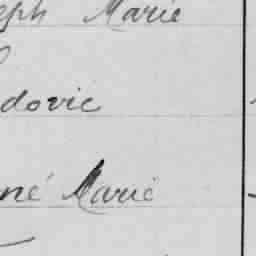 eph Marie
dovic
né Marie